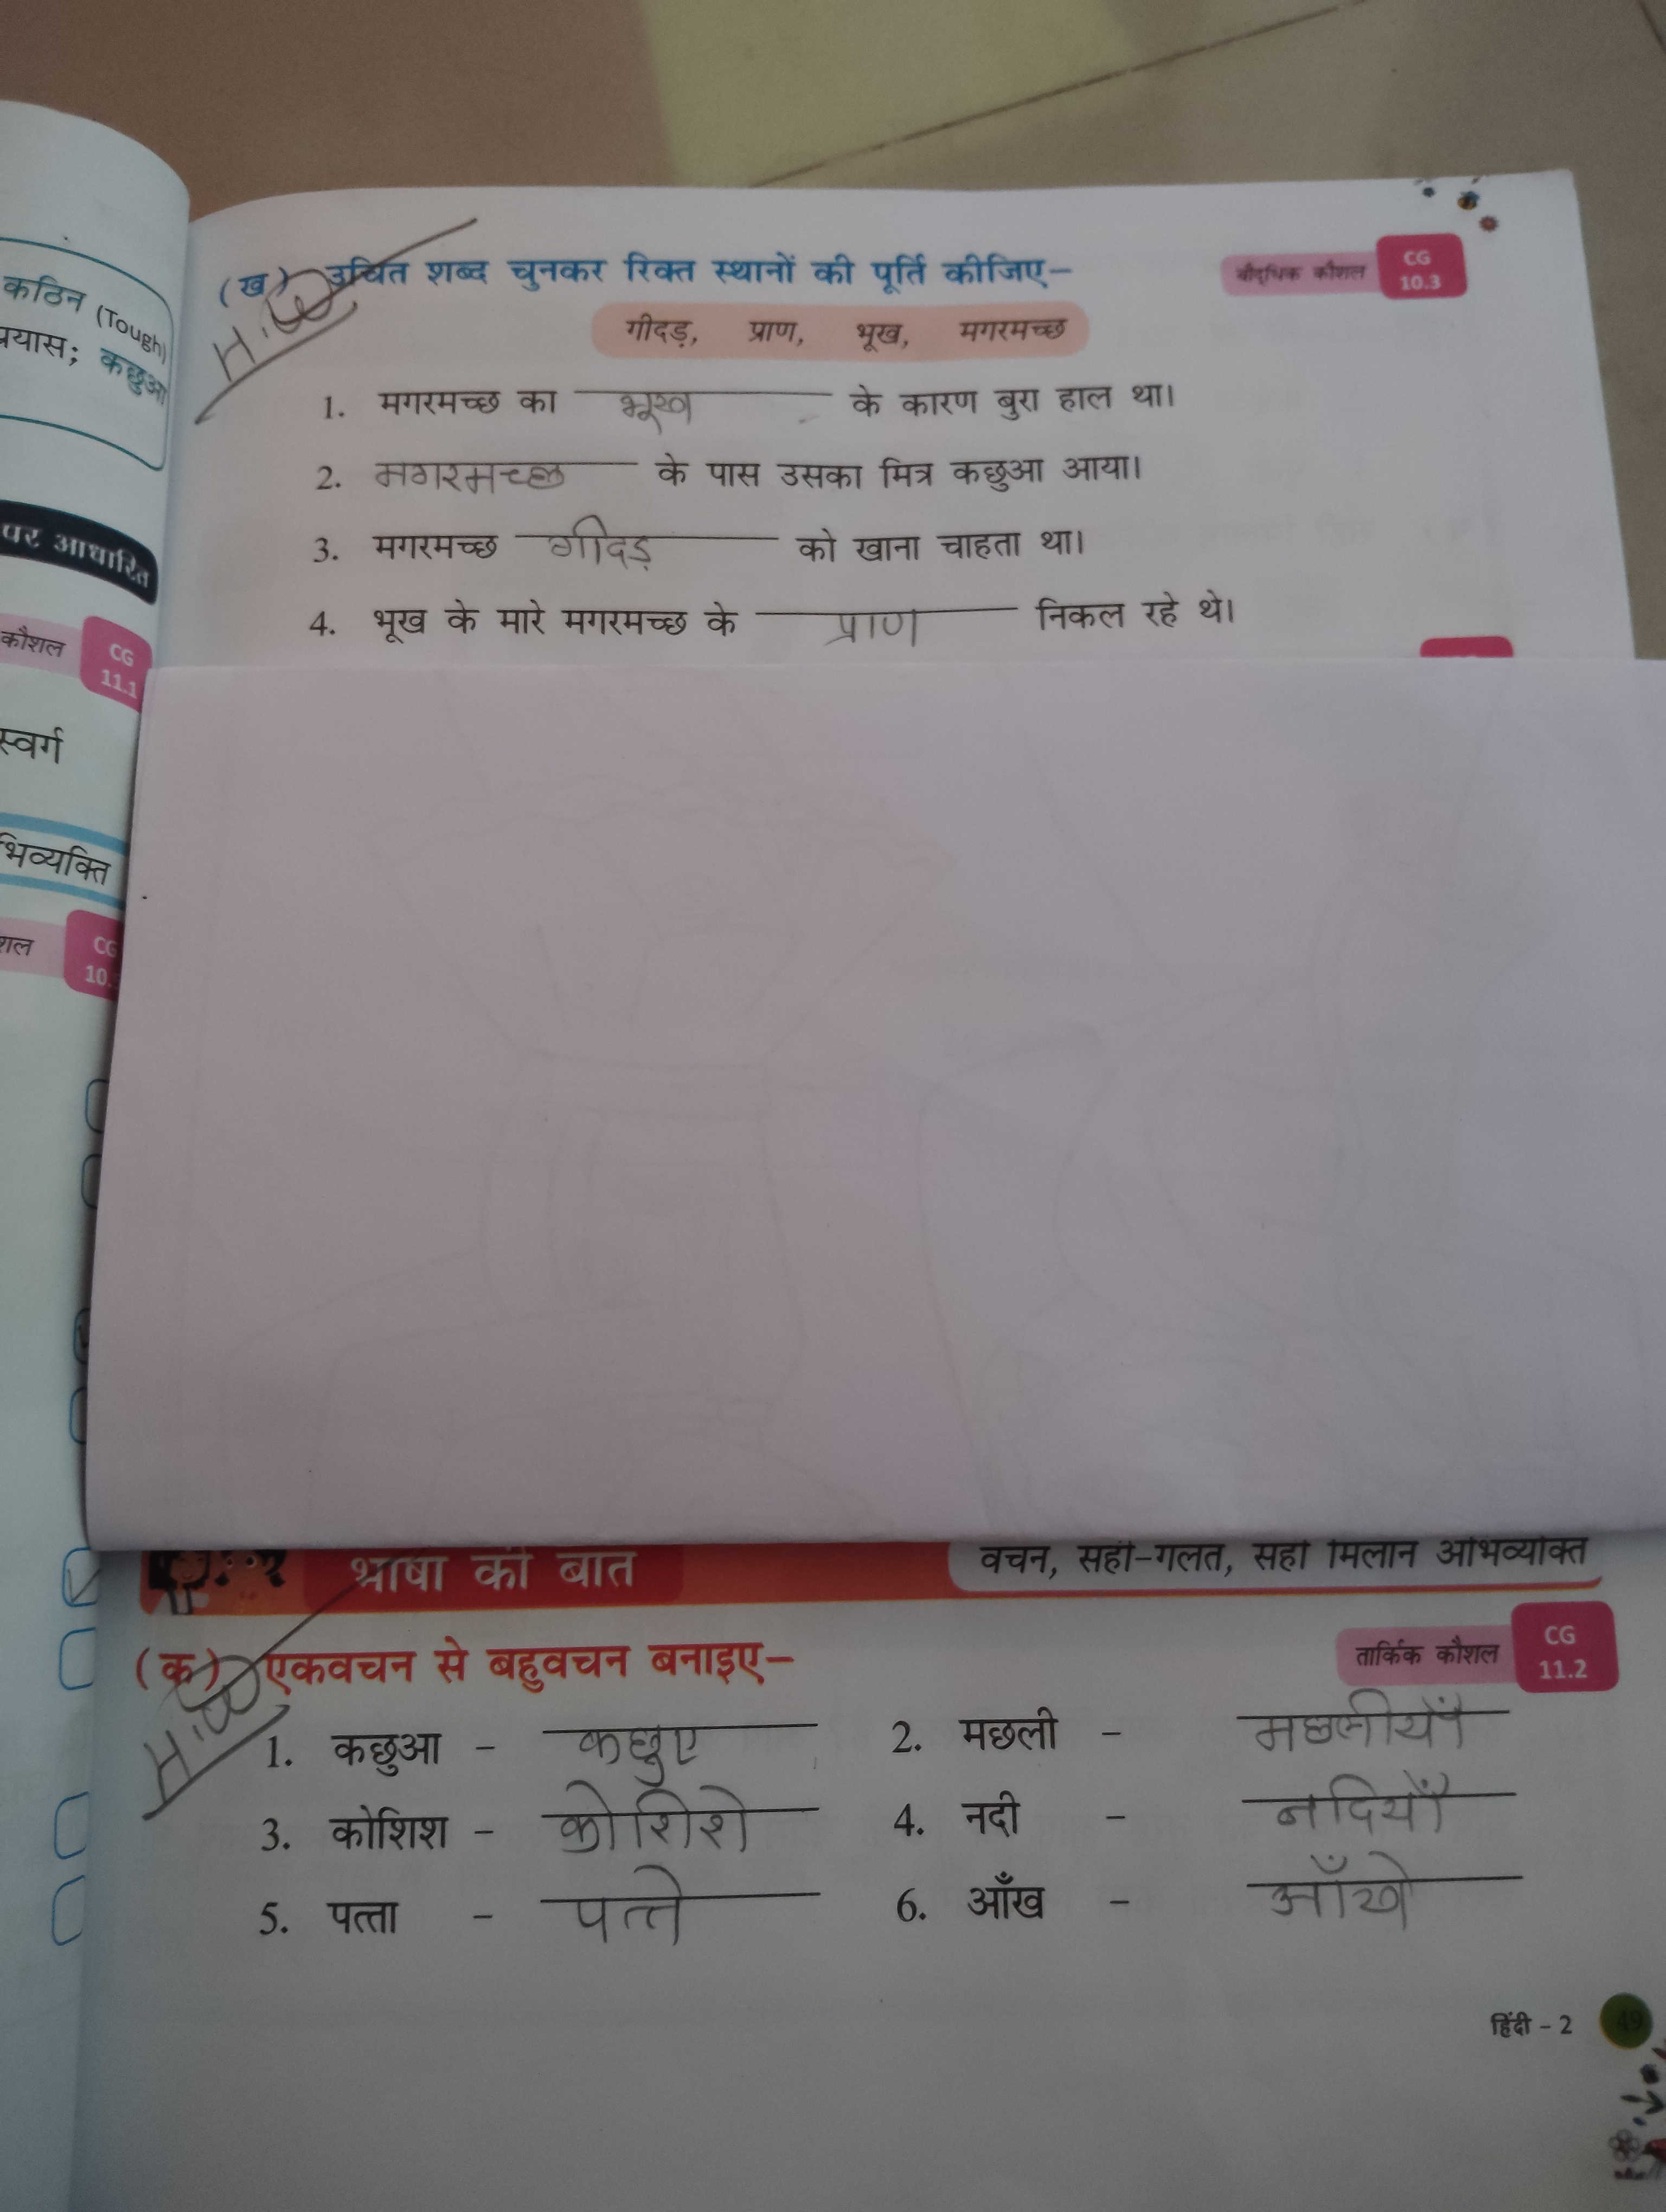 कठिन (Tough)
प्रयास; कछुआ
पर आधारित
कौशल CG 11.1
स्वर्ग
भिव्यक्ति
शल CG 10.
H.W
(ख) उचित शब्द चुनकर रिक्त स्थानों की पूर्ति कीजिए–
बौद्धिक कौशल CG 10.3
गीदड़, प्राण, भूख, मगरमच्छ
1. मगरमच्छ का भूख के कारण बुरा हाल था।
2. मगरमच्छ के पास उसका मित्र कछुआ आया।
3. मगरमच्छ गीदड़ को खाना चाहता था।
4. भूख के मारे मगरमच्छ के प्राण निकल रहे थे।
भाषा की बात
वचन, सही-गलत, सही मिलान अभिव्यक्ति
H.W
(क) एकवचन से बहुवचन बनाइए–
तार्किक कौशल CG 11.2
1. कछुआ - कछुए 2. मछली - मछलीयाँ
3. कोशिश - कोशिशे 4. नदी - नदियाँ
5. पत्ता - पत्ते 6. आँख - आँखे
हिंदी - 2 49